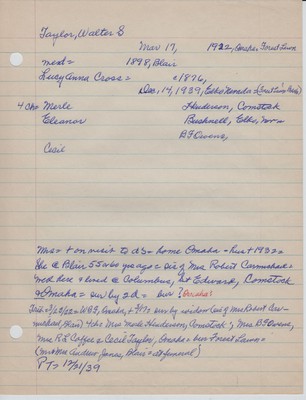 Taylor, Walter S
Mar 17, 1922, Omaha, Forest Lawn
next = 1898, Blair
Lucy Anna Cross = c1876,
Dec, 14, 1939, Elko Nevada =
4 Ch = Merle Henderson, Comstock
Eleanor Bushnell, Elko, Nev =
B F Owens,
Cecil
Mrs = + on visit to d's = home Omaha = hus + 1922 =
the @ Blair 55 yrs ago = sis of Mrs Robert Carmichael =
wed here & lived @ Columbus, St Edward, Comstock
& Omaha = sur/ by 2d = bur Omaha!
Omaha, sur by widow (sis of Mrs Robert Car-
michael, Blair) 4 chs Mrs Merle Henderson, Comstock, Mrs B F Owens,
Mrs R L Coffee & Cecil Taylor, Omaha = bur Forest Lawn =
(Mr & Mrs Andrew Jones, Blair = at funeral)
PT = 12/21/39